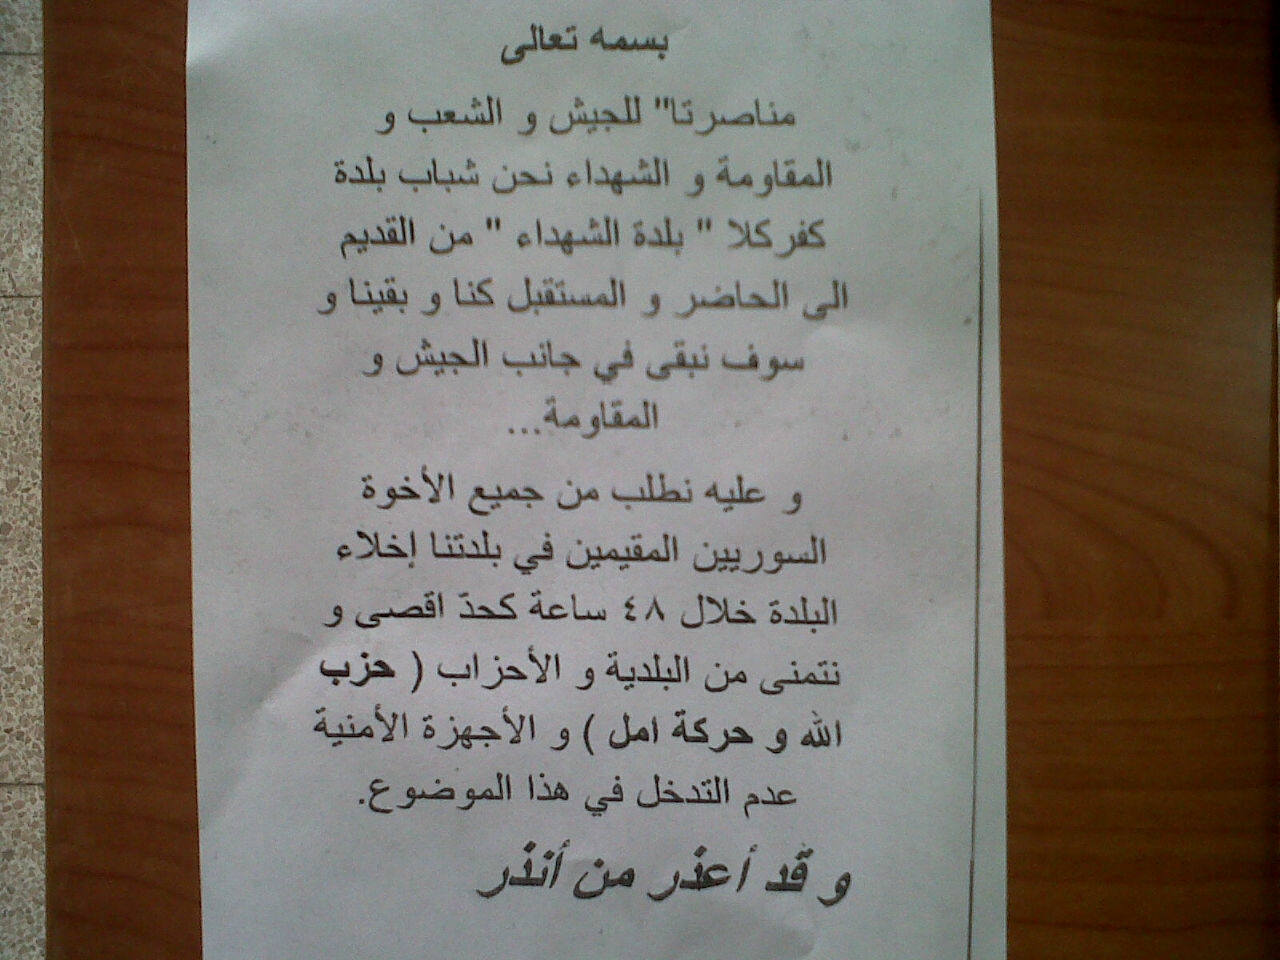 بسمه تعالى
مناصرتا" للجيش و الشعب و
المقاومة و الشهداء نحن شباب بلدة
كفركلا " بلدة الشهداء " من القديم
الى الحاضر و المستقبل كنا و بقينا و
سوف نبقى في جانب الجيش و
المقاومة...
و عليه نطلب من جميع الأخوة
السوريين المقيمين في بلدتنا إخلاء
البلدة خلال ٤٨ ساعة كحدّ اقصى و
نتمنى من البلدية و الأحزاب ( حزب
الله و حركة امل ) و الأجهزة الأمنية
عدم التدخل في هذا الموضوع.
و قد أعذر من أنذر